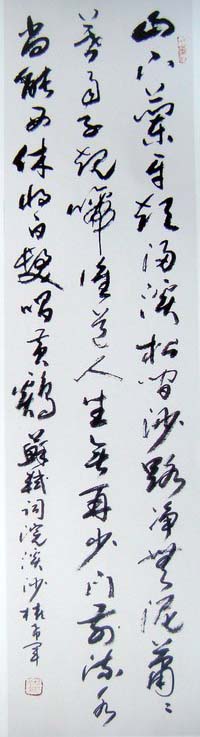 山下蘭芽短浸溪松間沙路淨無泥蕭々
暮雨子規啼誰道人生無再少門前流水
尚能西休將白髮唱黃鷄 蘇軾詞浣溪沙